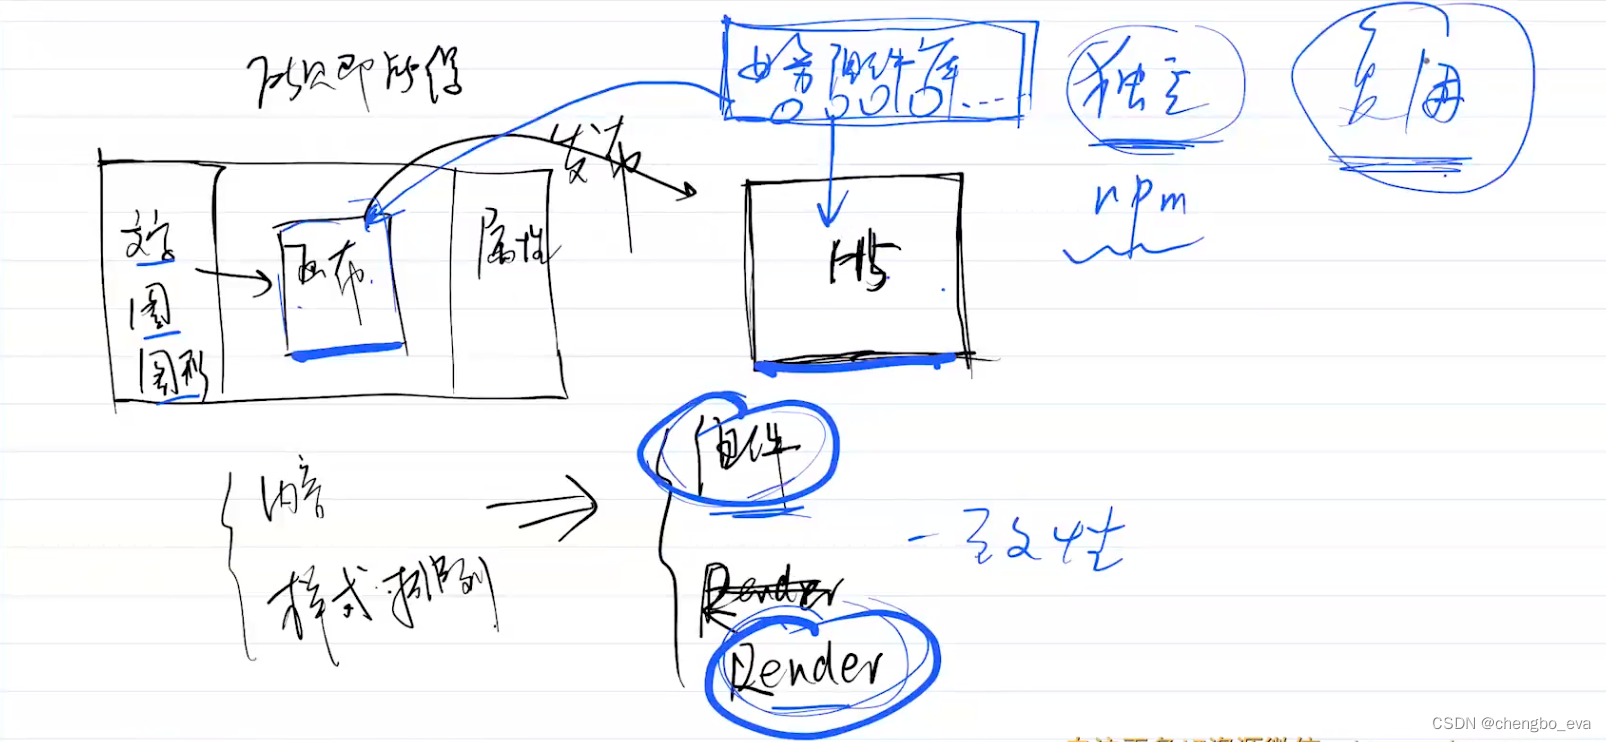 所见即所得
业务组件库
独立
复用
npm
发布
文字
图
图形
画布
属性
H5
组件
内容
样式 排列
一致性
Render
Render
CSDN @chengbo_eva